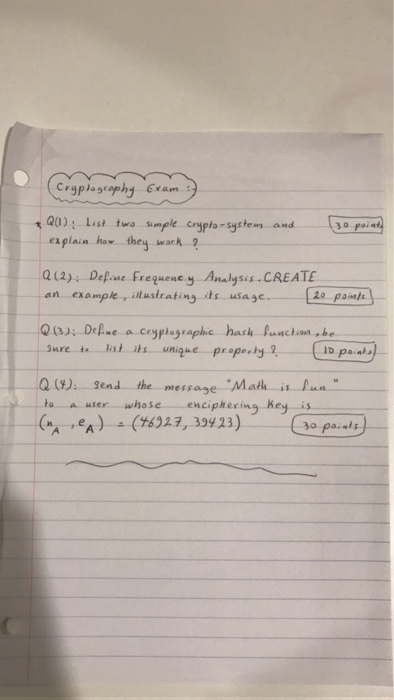 Cryptography Exam :-
* Q(1): List two simple crypto-system and 30 points
explain how they work ?
Q(2): Define Frequency Analysis. CREATE
an example, illustrating its usage. 20 points
Q(3): Define a cryptographic hash function, be
sure to list its unique property ? 10 points
Q(4): Send the message "Math is fun"
to a user whose enciphering Key is
(nA, eA) = (46927, 39423) 30 points